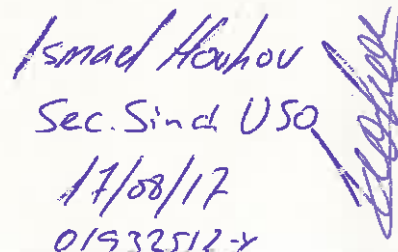 Ismael Houhou
Sec. Sind USO
17/08/17
01932512-Y